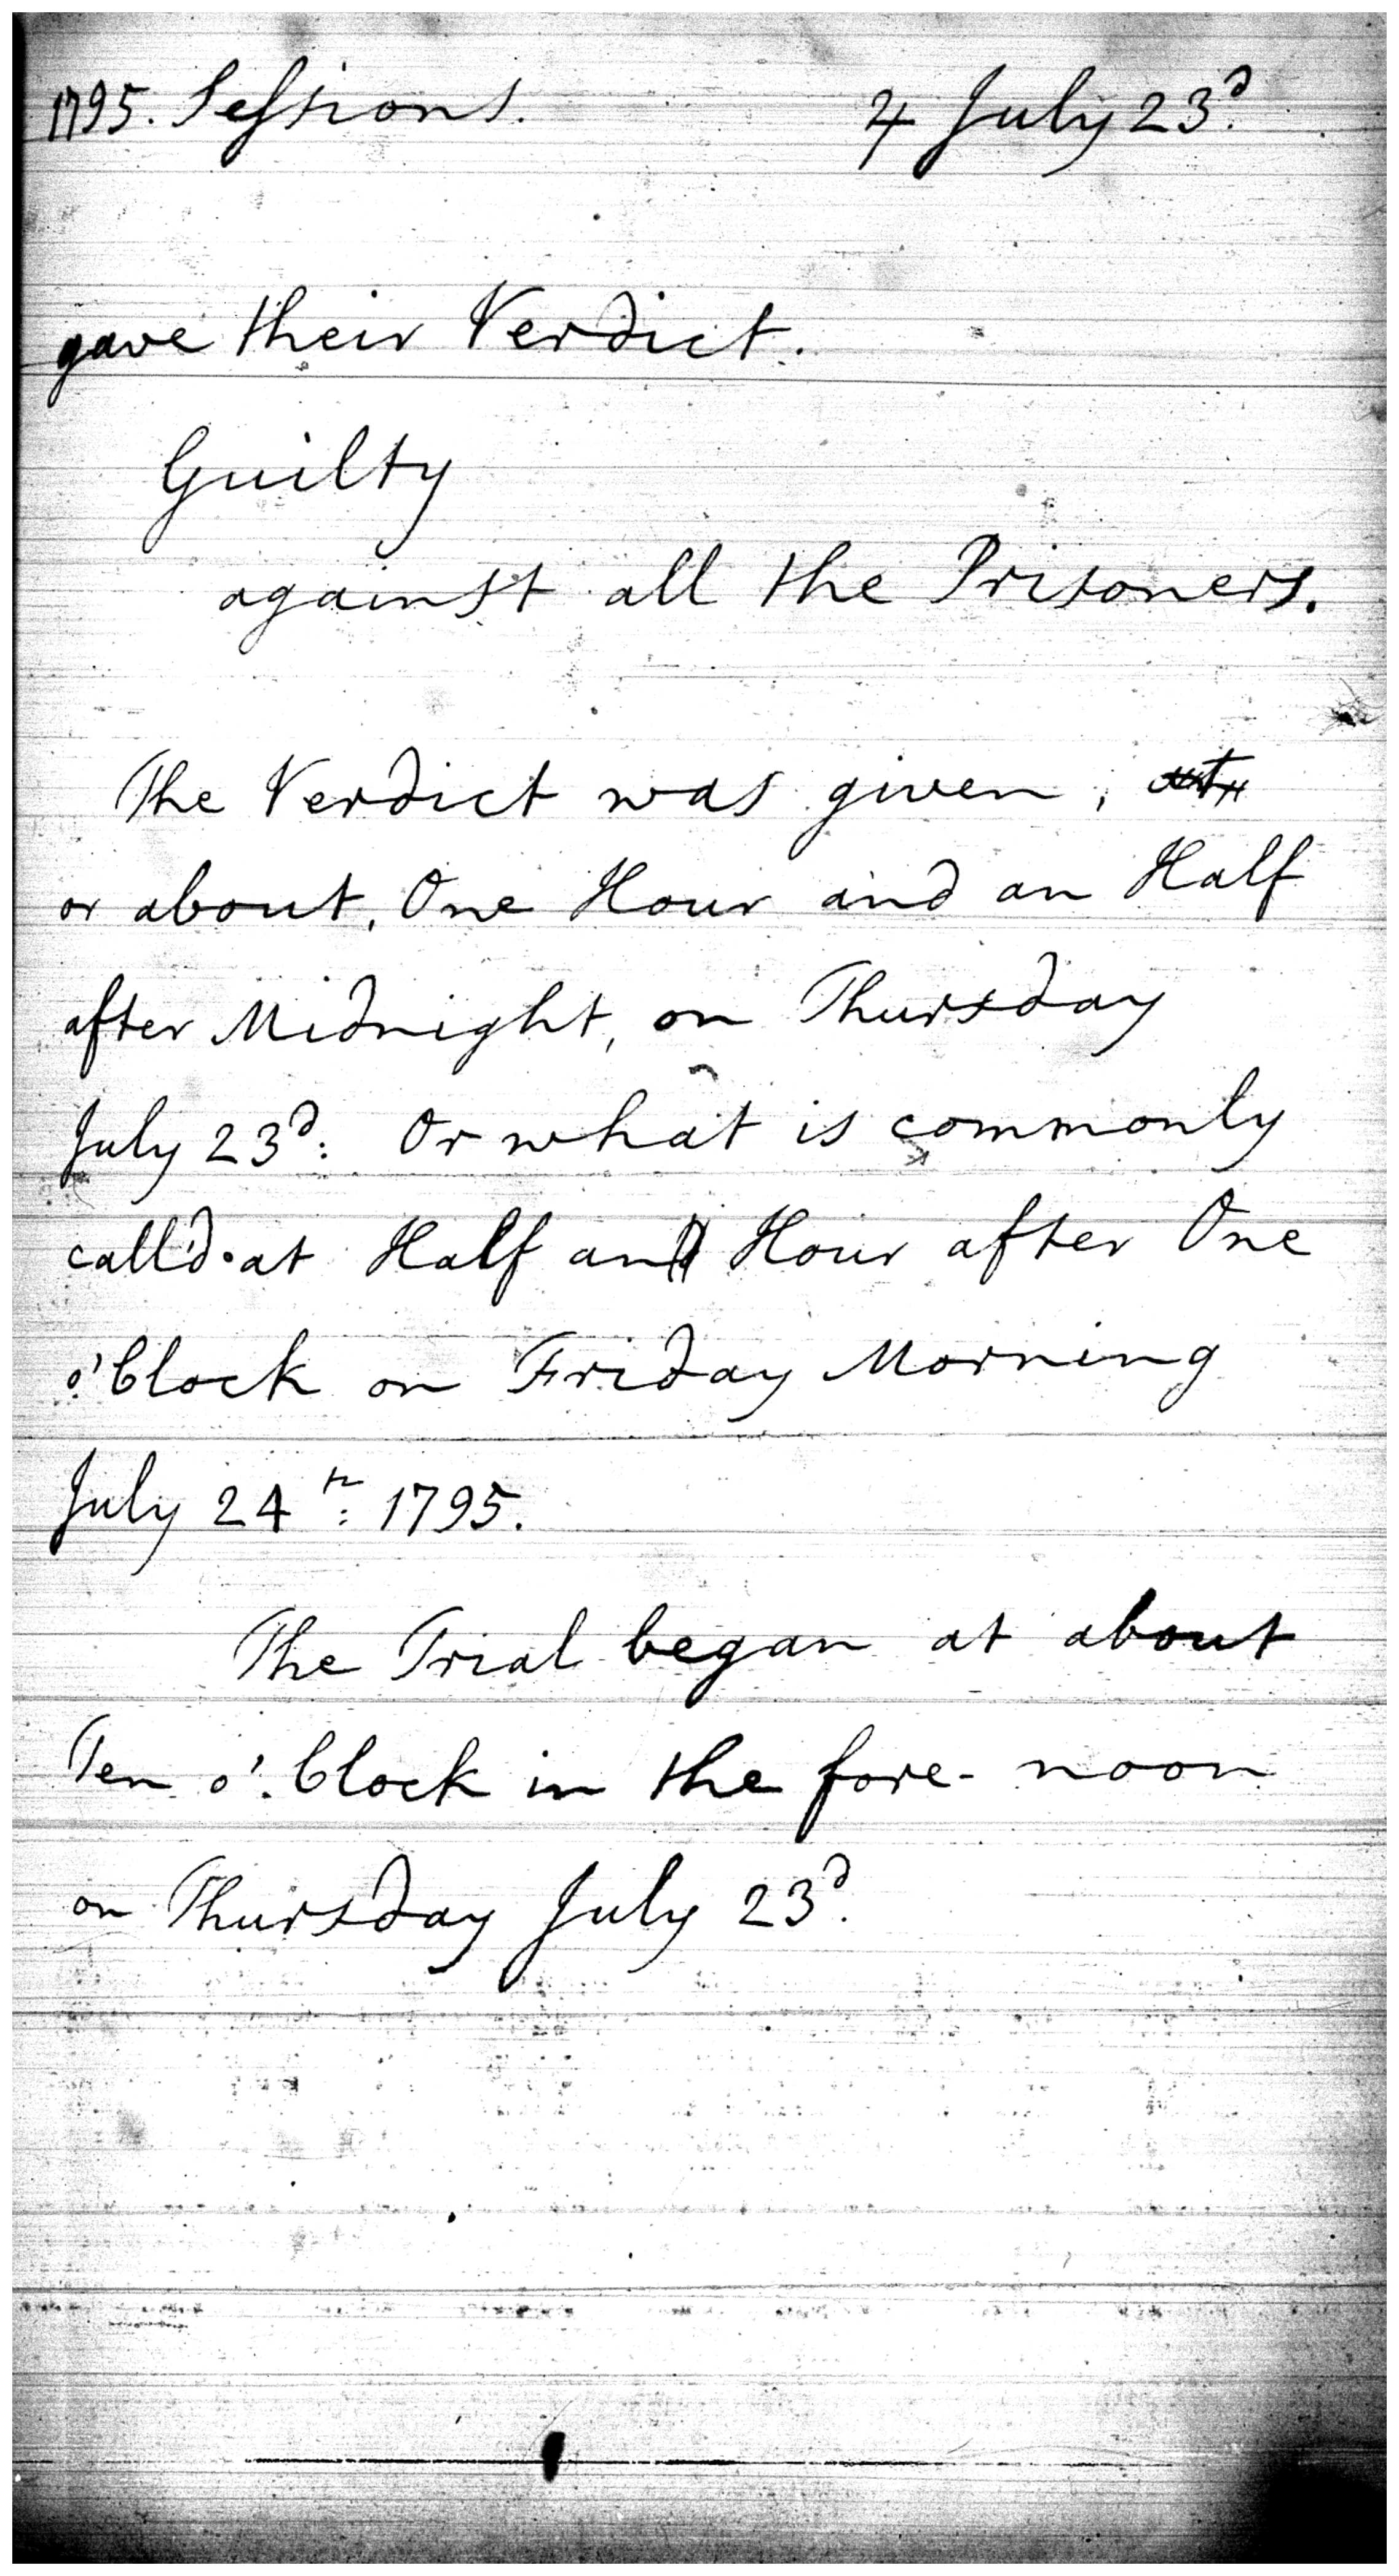 1795. Sessions. 4 July 23d.
gave their Verdict.
Guilty
against all the Prisoners.
The Verdict was given, at,
or about, One Hour and an Half
after Midnight, on Thursday
July 23d: Or what is commonly
call'd at Half an Hour after One
o' Clock on Friday Morning
July 24th: 1795.
The Trial began at about
Ten o'. Clock in the fore-noon
on Thursday July 23d.